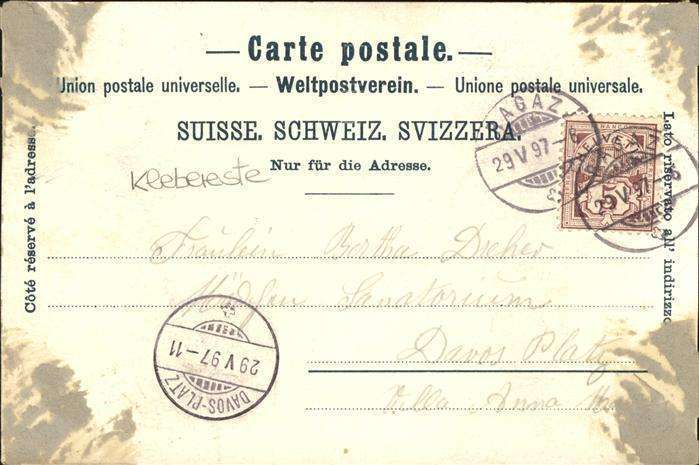 Carte postale.
Union postale universelle. — Weltpostverein. — Unione postale universale.
SUISSE. SCHWEIZ. SVIZZERA.
Nur für die Adresse.
Klebereste
Côté réservé à l'adresse.
Lato riservato all' indirizzo
RAGAZ
29 V 97
HELVETIA
5
29 V 97
Fräulein Bertha Dreher
Sanatorium
Davos Platz
Villa Anna
DAVOS-PLATZ
29 V 97-11